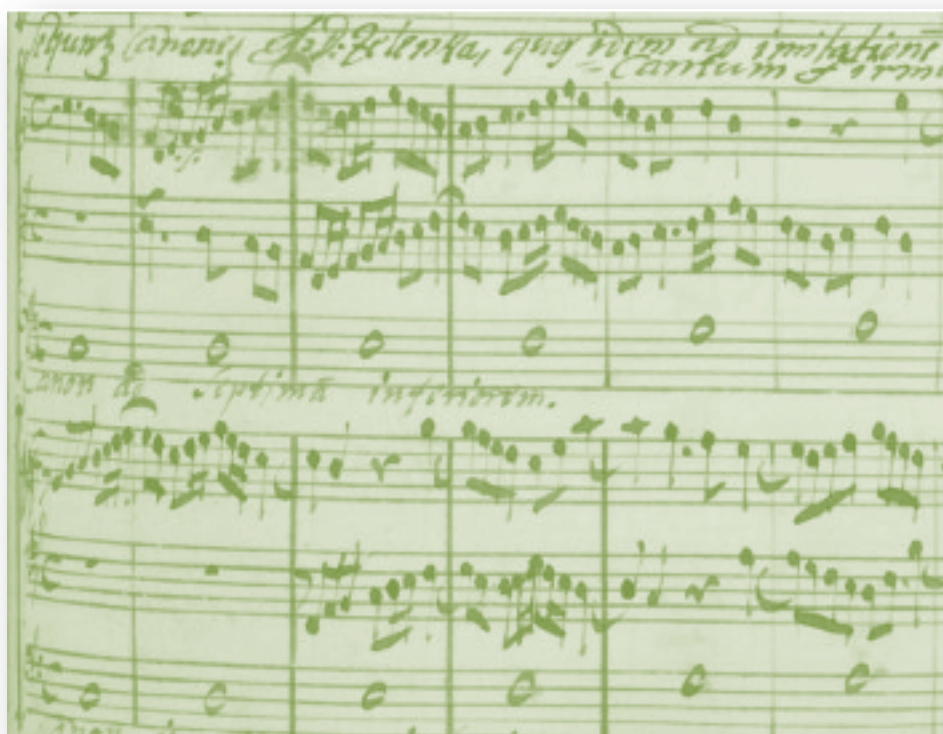 Canones J: D: Zelenka, quo idem ad imitatione
Cantum Firmu
Canon ad Septimā inferiorem.
Canon